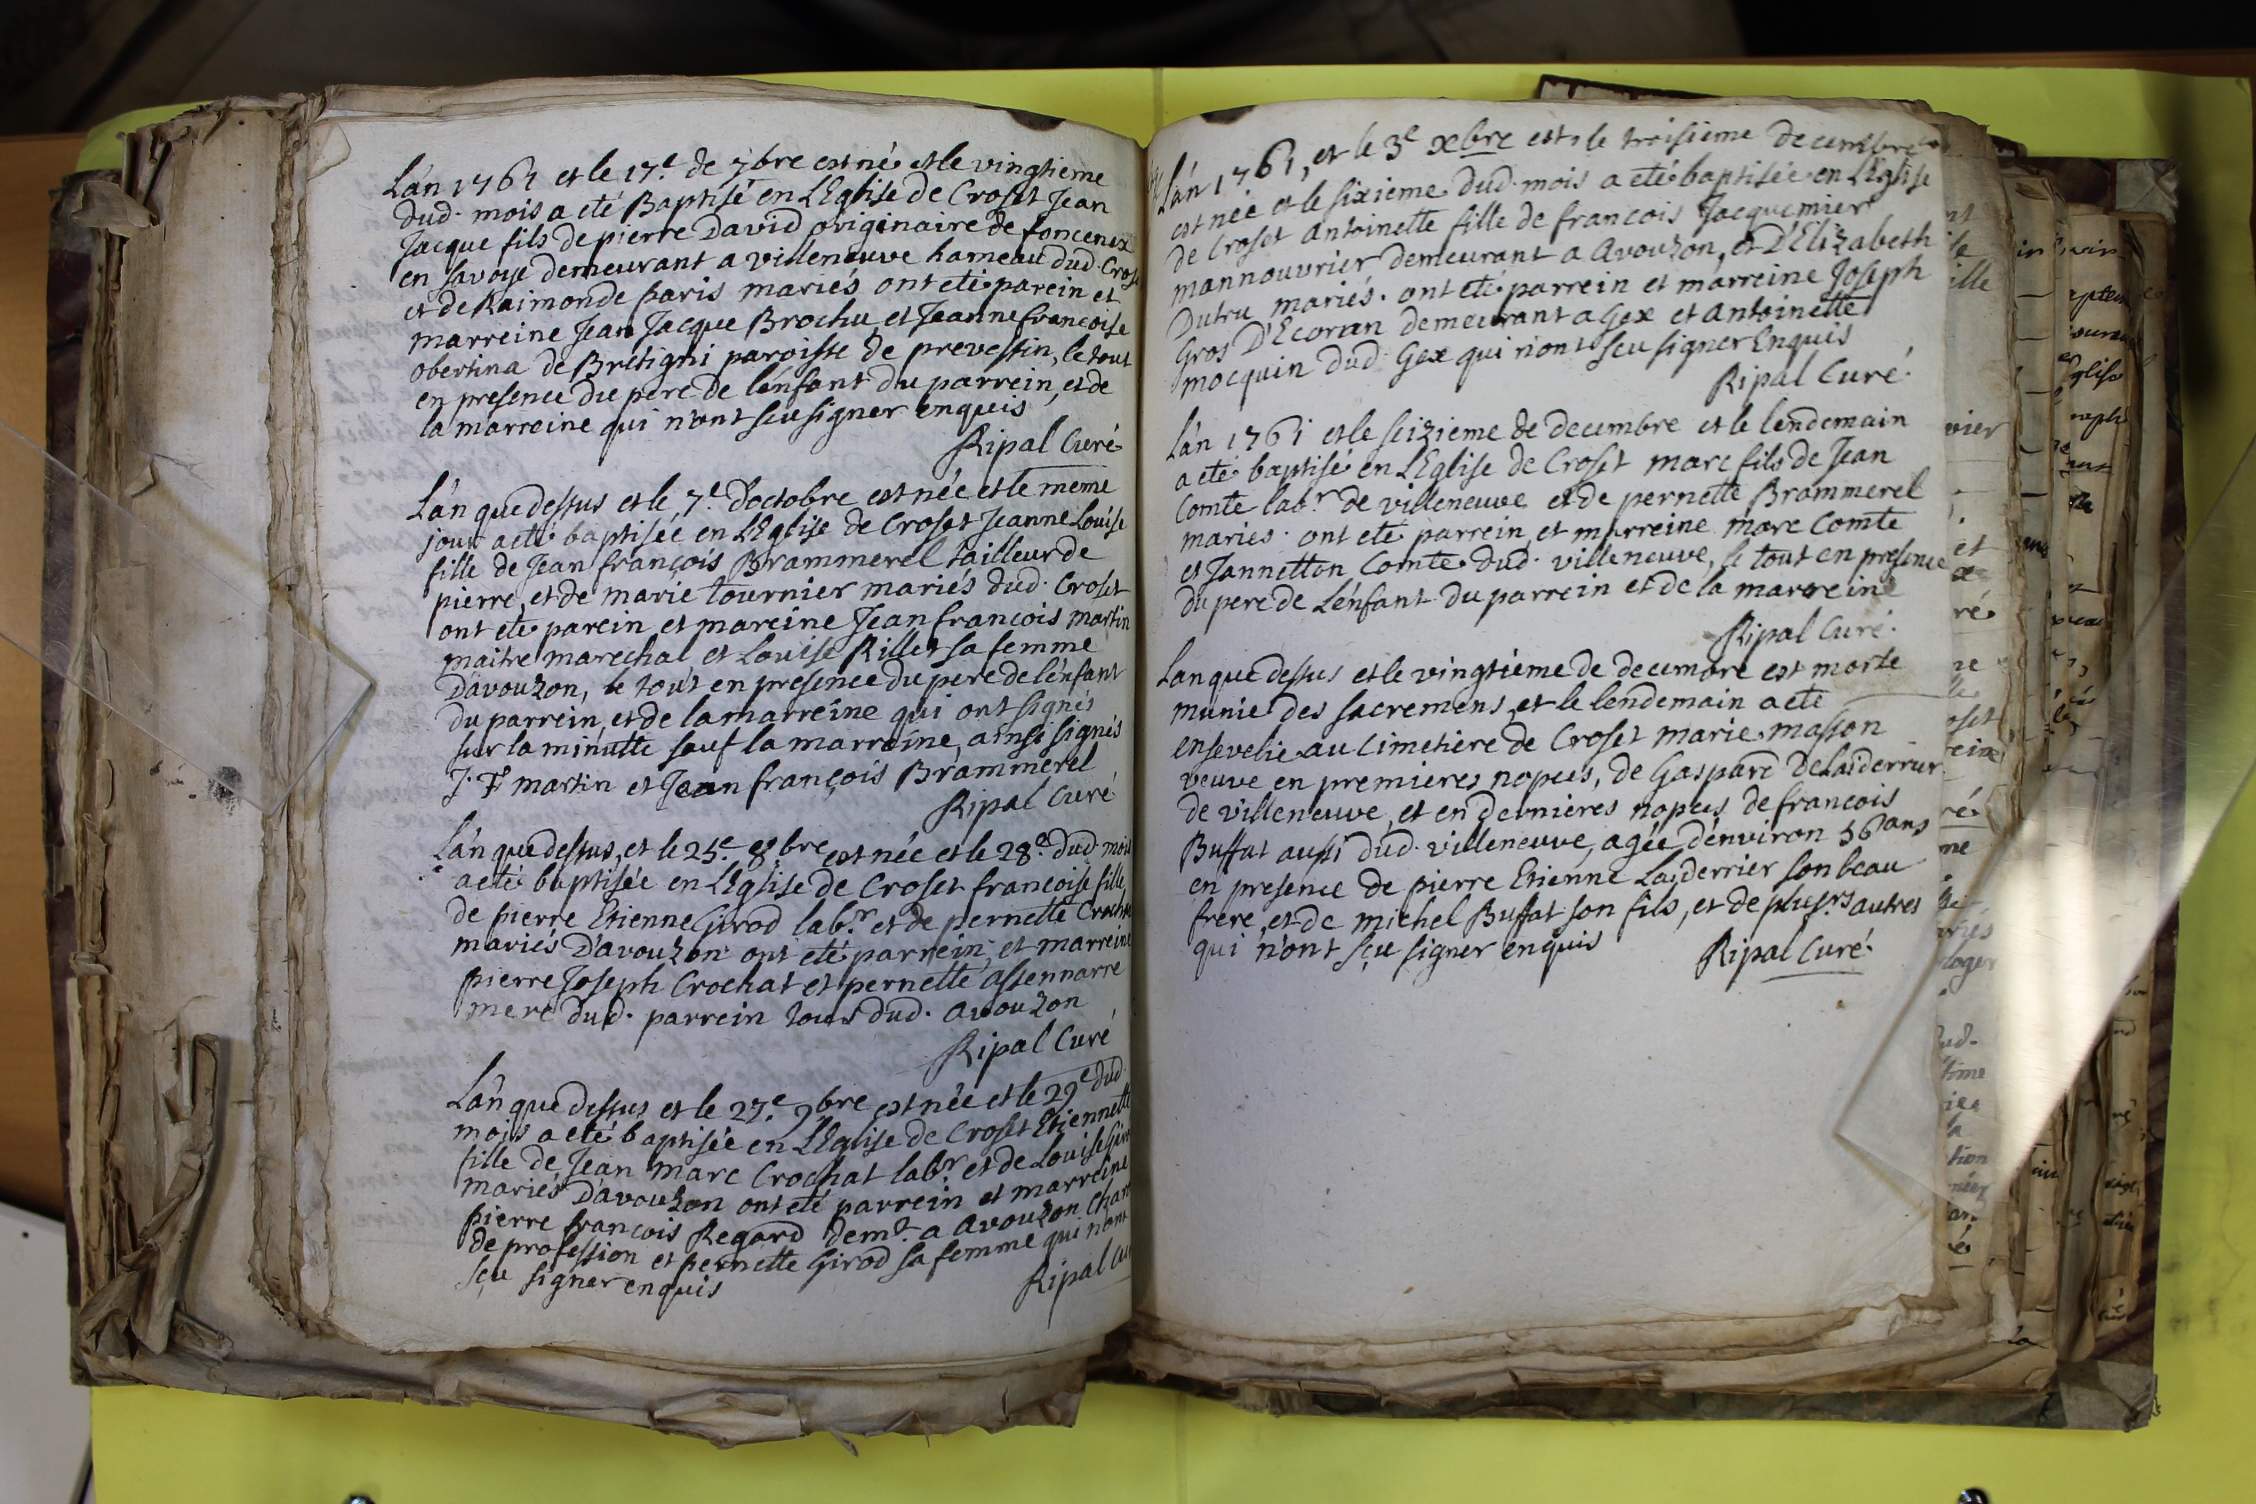 Lán 1761 et le 17.e de 7bre est né et le vingtieme
dud. mois a eté Baptisé en L'Eglise de Croset Jean
Jacque fils de pierre David originaire de foncenex
en savoye demeurant a villeneuve hameau dud. Croset
et de Raimonde paris mariés ont eté parein et
marreine Jean Jacque Brochu et Jeanne francoise
obertina de Brétigni paroisse de prevessin, le tout
en presence du pere de lénfant du parrein, et de
la marreine qui n'ont sçu signer enquis
Ripal Curé
Lán que dessus et le 7.e d'octobre est née et le meme
jour a eté baptisée en L'Eglise de Croset Jeanne Louise
fille de Jean françois Brammerel tailleur de
pierre, et de marie tournier mariés dud. Croset
ont eté parein et mareine Jean francois martin
maitre marechal et Louise Rillet sa femme
D'avouzon, le tout en presence du pere de lénfant
du parrein, et de la marreine qui ont signés
sur la minutte sauf la marreine, ainsi signés
J. F. martin et Jean françois Brammerel
Ripal Curé
Lán que dessus, et le 25.e 8bre est née et le 28.e dud. mois
a eté baptisée en L'Eglise de Croset francoise fille
de pierre Etienne Girod labr. et de pernette Crochat
mariés D'avouzon ont eté parrein, et marreine
pierre Joseph Crochat et pernette assennarre
mere dud. parrein tous dud. avouzon
Ripal Curé
Lán que dessus et le 27.e 9bre est née et le 29.e dud.
mois a eté baptisée en L'Eglise de Croset Etiennette
fille de Jean marc Crochat labr. et de Louise
mariés D'avouzon ont eté parrein et marreine
pierre françois Regard demt. a avouzon
de profession et pernette Girod sa femme qui n'ont
sçu signer enquis
Ripal
Lán 1761, et le 3e xbre est, le troisieme decembre
est née et le sixieme dud. mois a eté baptisée en L'Eglise
de Croset antoinette fille de francois Jacquemier
mannouvrier demeurant a avouzon, et D'Elizabeth
Dutru mariés. ont eté parrein et marreine Joseph
Gros D'Ecoran demeurant a Gex et antoinette
mocquin dud. Gex qui n'ont sçeu signer Enquis
Ripal Curé.
Lán 1761 et le seizieme de decembre et le lendemain
a eté baptisé en L'Eglise de Croset marc fils de Jean
Comte labr. de villeneuve et de pernette Brammerel
mariés. ont eté parrein, et marreine marc Comte
et Jannetton Comte dud. villeneuve, le tout en presence
du pere de L'enfant du parrein et de la marreine
Ripal Curé.
Lan que dessus et le vingtieme de decembre est morte
munie des sacremens, et le lendemain a eté
ensevelie au Cimetière de Croset marie masson
veuve en premieres nopces, de Gaspard Delaiderrier
de villeneuve, et en dernières nopces de francois
Buffat aussi dud. villeneuve, agée d'environ 56 ans
en presence de pierre Etienne Laiderrier son beau
frere, et de michel Buffat son fils, et de plusrs autres
qui n'ont sçu signer enquis
Ripal Curé.